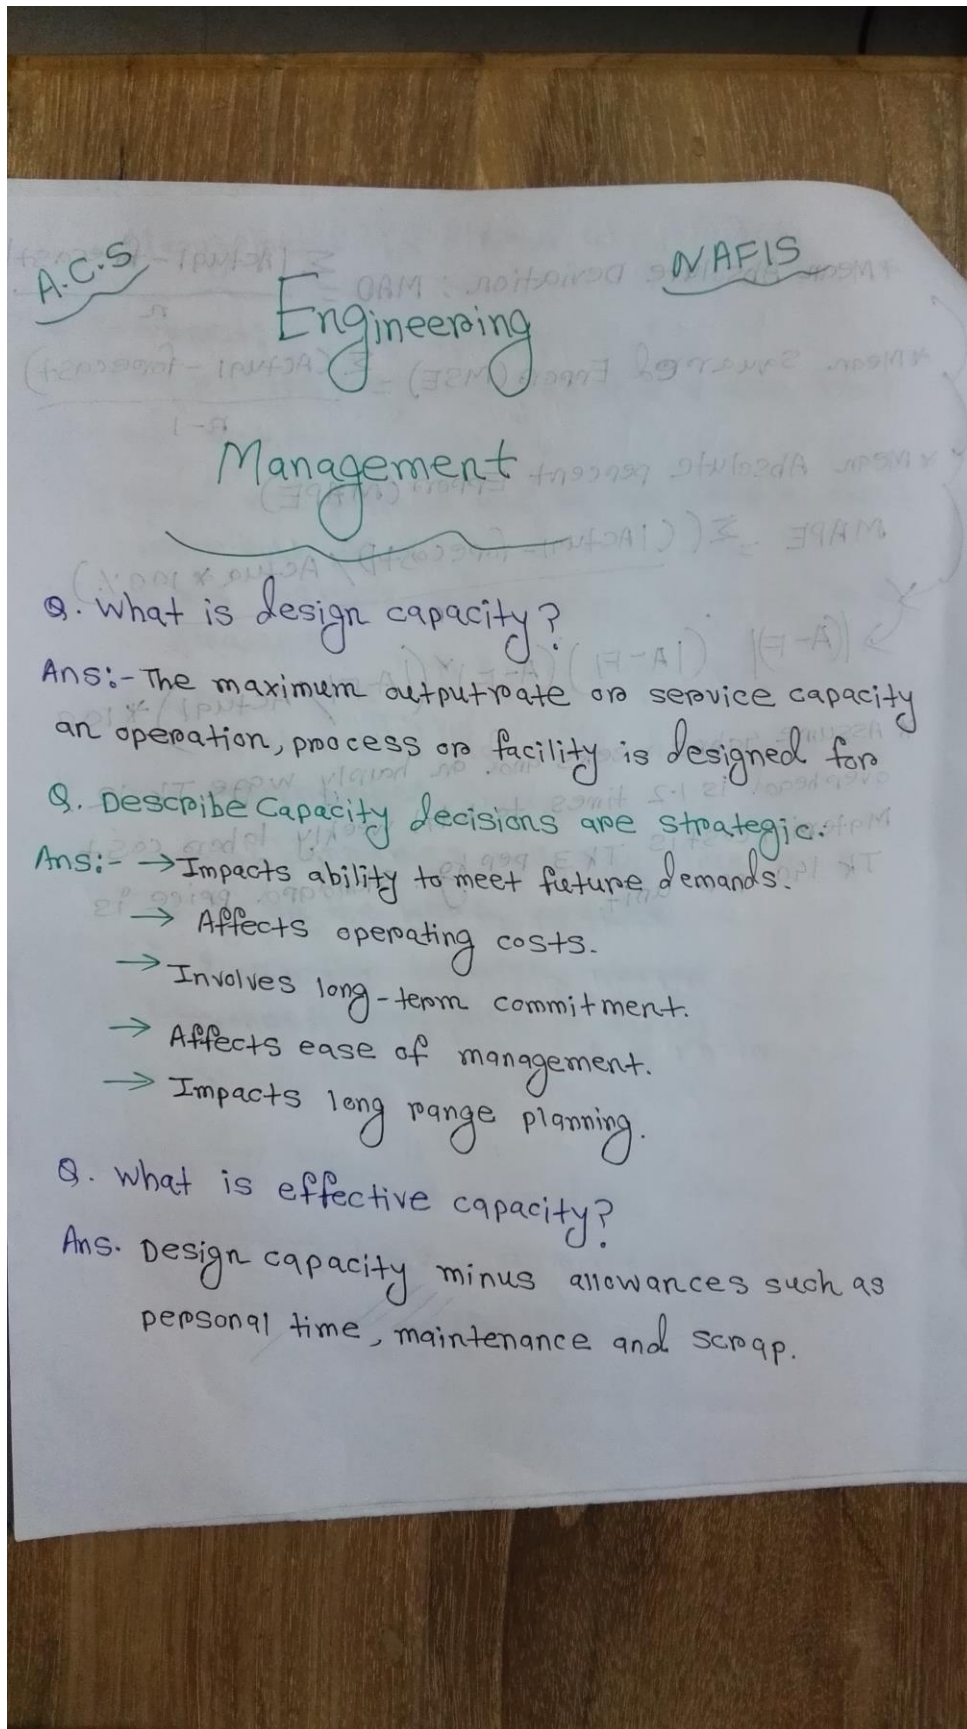 A.C.S
NAFIS
Engineering
Management
Q. What is design capacity?
Ans:- The maximum outputrate or service capacity
an operation, process or facility is designed for
Q. Describe Capacity decisions are strategic.
Ans:- → Impacts ability to meet future demands.
→ Affects operating costs.
→ Involves long-term commitment.
→ Affects ease of management.
→ Impacts long range planning.
Q. What is effective capacity?
Ans. Design capacity minus allowances such as
personal time, maintenance and scrap.